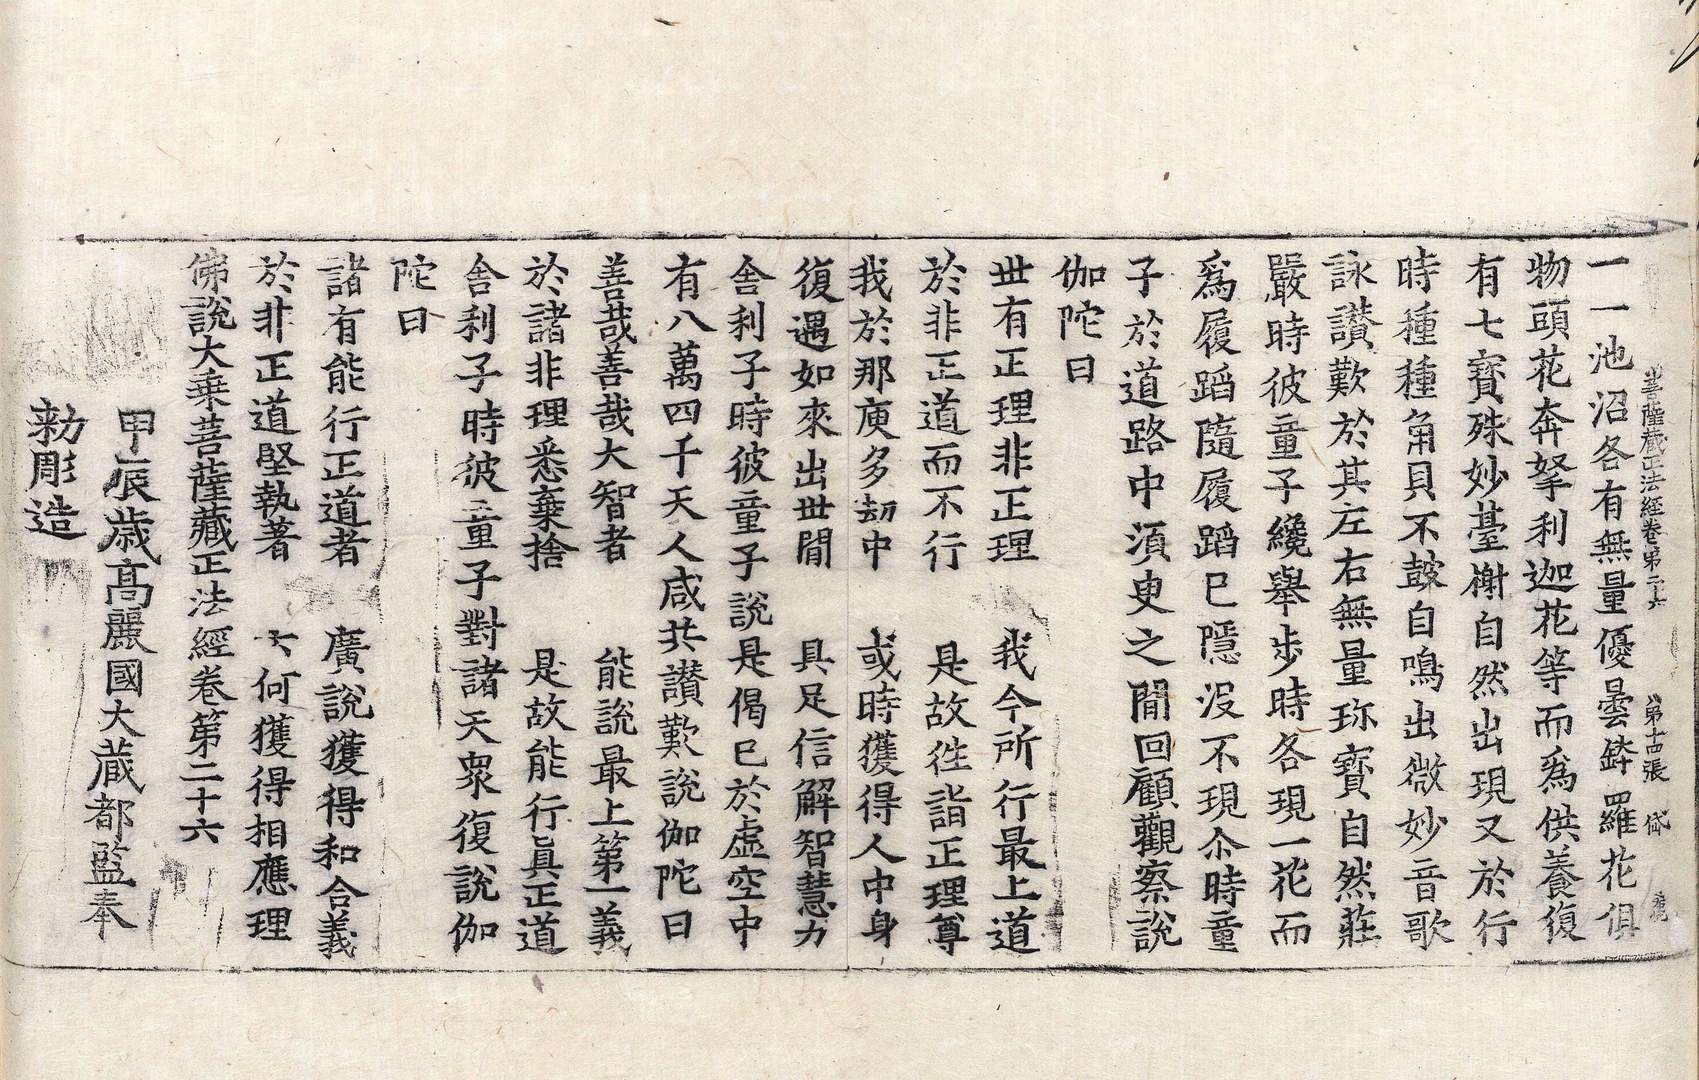 菩薩藏正法經卷第二十六 第十古張 岱
一一池沼各有無量優曇鉢羅花俱
物頭花奔拏利迦花等而爲供養復
有七寶殊妙臺榭自然出現又於行
時種種角貝不鼓自鳴出微妙音歌
詠讃歎於其左右無量珎寶自然莊
嚴時彼童子纔舉步時各現一花而
爲履蹈隨履蹈已隱沒不現尒時童
子於道路中湏臾之閒回顧觀察說
伽陁曰
世有正理非正理 我今所行最上道
於非正道而不行 是故徃詣正理尊
我於那庾多劫中 或時獲得人中身
復遇如來出世閒 具足信解智慧力
舍利子時彼童子說是偈已於虛空中
有八萬四千天人咸共讃歎說伽陁曰
善哉善哉大智者 能說最上第一義
於諸非理悉棄捨 是故能行眞正道
舍利子時彼童子對諸天衆復說伽
陁曰
諸有能行正道者 廣說獲得和合義
於非正道堅執著 云何獲得相應理
佛說大乗菩薩藏正法經卷第二十六
甲辰歳高麗國大藏都監奉
勑彫造